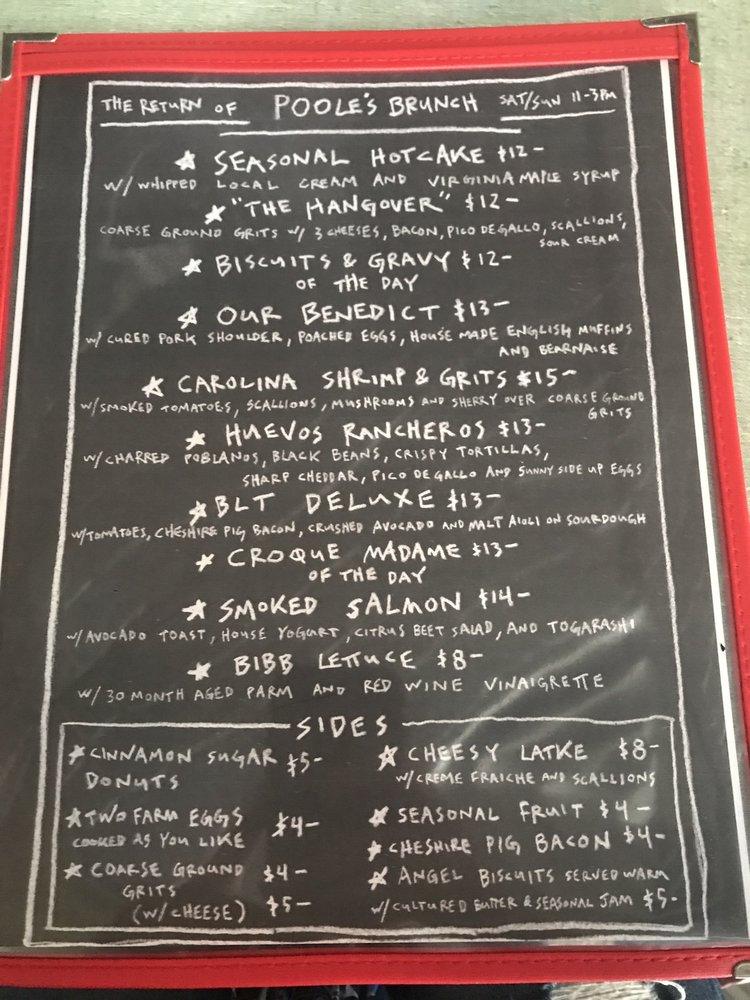 THE RETURN OF POOLE'S BRUNCH SAT/SUN 11-3PM
★ SEASONAL HOTCAKE $12-
W/ WHIPPED LOCAL CREAM AND VIRGINIA MAPLE SYRUP
★ "THE HANGOVER" $12-
COARSE GROUND GRITS W/ 3 CHEESES, BACON, PICO DE GALLO, SCALLIONS,
SOUR CREAM
★ BISCUITS & GRAVY $12-
OF THE DAY
★ OUR BENEDICT $13-
W/ CURED PORK SHOULDER, POACHED EGGS, HOUSE MADE ENGLISH MUFFINS
AND BEARNAISE
★ CAROLINA SHRIMP & GRITS $15-
W/SMOKED TOMATOES, SCALLIONS, MUSHROOMS AND SHERRY OVER COARSE GROUND
GRITS
★ HUEVOS RANCHEROS $13-
W/ CHARRED POBLANOS, BLACK BEANS, CRISPY TORTILLAS,
SHARP CHEDDAR, PICO DE GALLO AND SUNNY SIDE UP EGGS
★ BLT DELUXE $13-
W/TOMATOES, CHESHIRE PIG BACON, CRUSHED AVOCADO AND MALT AIOLI ON SOURDOUGH
★ CROQUE MADAME $13-
OF THE DAY
★ SMOKED SALMON $14-
W/AVOCADO TOAST, HOUSE YOGURT, CITRUS BEET SALAD, AND TOGARASHI
★ BIBB LETTUCE $8-
W/ 30 MONTH AGED PARM AND RED WINE VINAIGRETTE
SIDES
★ CINNAMON SUGAR $5-
DONUTS
★ TWO FARM EGGS $4-
COOKED AS YOU LIKE
★ COARSE GROUND $4-
GRITS
(W/ CHEESE) $5-
★ CHEESY LATKE $8-
W/CREME FRAICHE AND SCALLIONS
★ SEASONAL FRUIT $4-
★ CHESHIRE PIG BACON $4-
★ ANGEL BISCUITS SERVED WARM
W/CULTURED BUTTER & SEASONAL JAM $5-